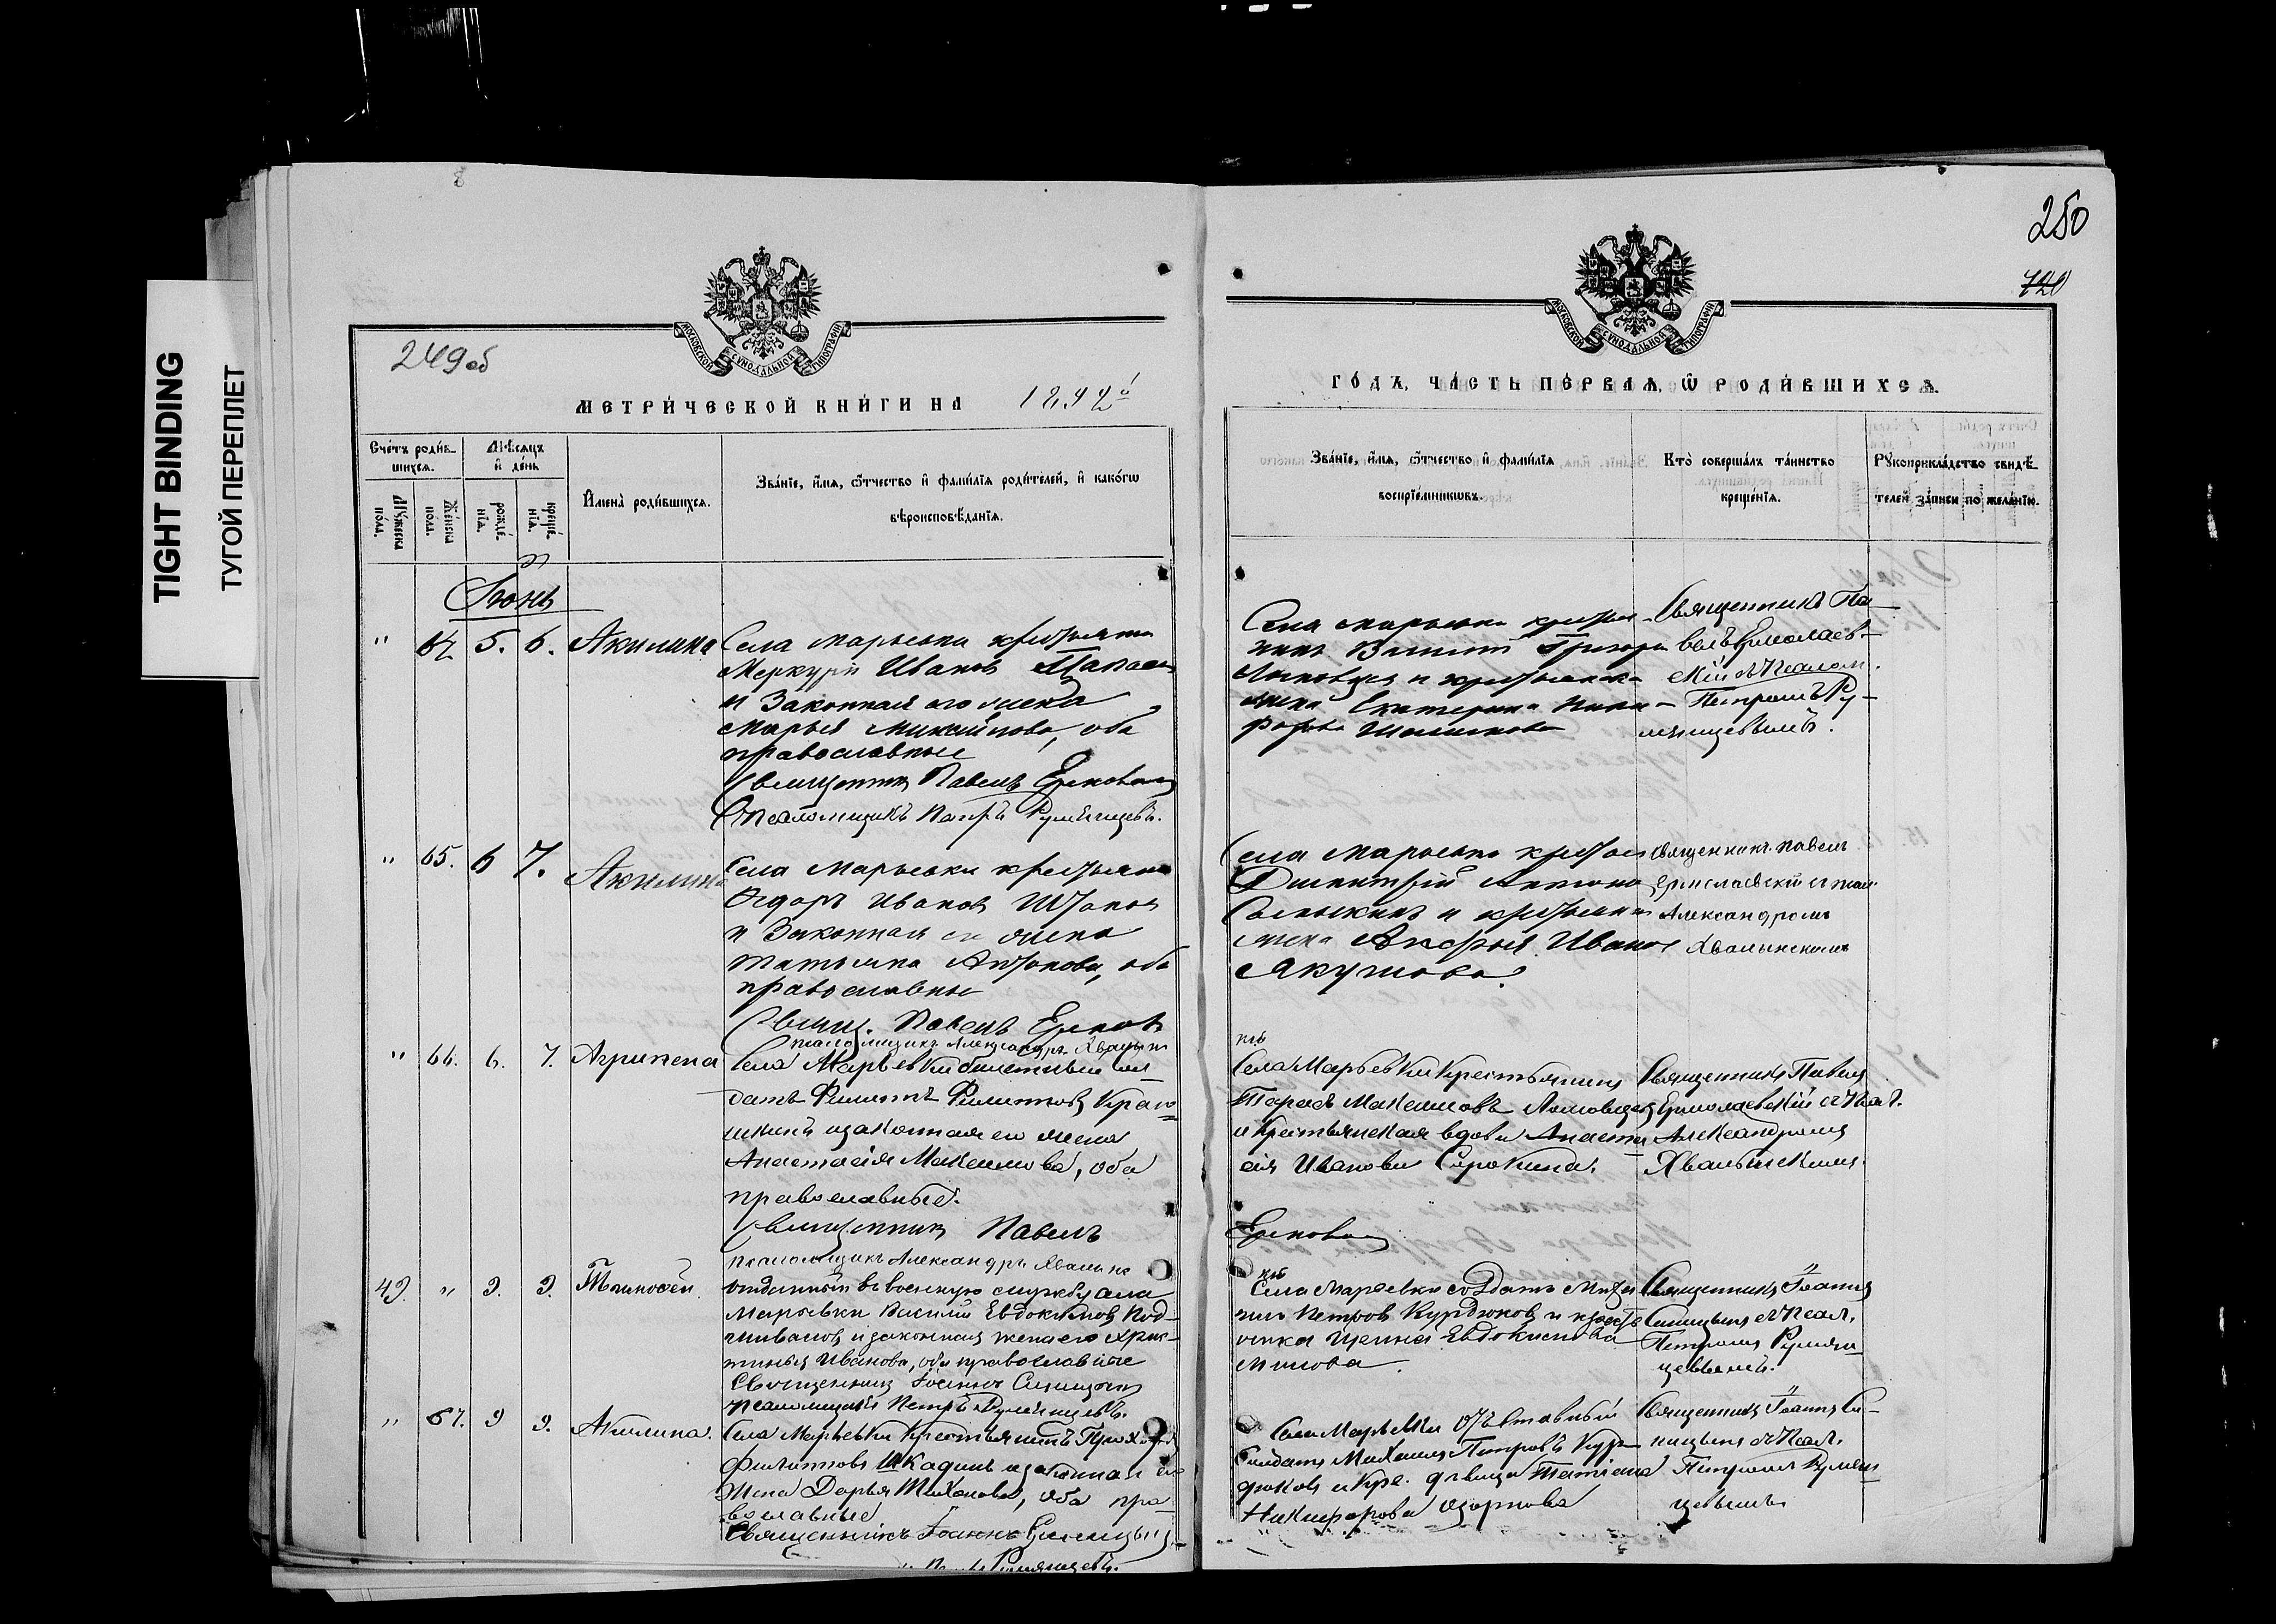 TIGHT BINDING
ТУГОЙ ПЕРЕПЛЕТ
249об
МОСКОВСКОЙ СѴНОДАЛЬНОЙ ТИПОГРАФІИ
МЕТРИ́ЧЕСКОЙ КНИ́ГИ НА 1892й
Сче́тъ роди́в-
шихсѧ.
Мѣ́сѧцъ
и҆ де́нь
Мꙋ́жеска по́ла.
Же́нска по́ла.
рожде́-
нїѧ.
креще́-
нїѧ.
И҆мена̀ роди́вшихсѧ.
Зва́нїе, и҆́мѧ, ѻ҆́тчество и҆ фами́лїѧ роди́телей, и҆ како́гѡ
вѣроисповѣ́данїѧ.
Іюнь
" 64 5. 6. Акилина
Села Марьевки крестьянин
Меркурій Иванов
и Законная его жена
Марья Михайлова, оба
православные
Священник Павелъ Ермолаев
Псаломщикъ Петръ Румянцевъ.
" 65. 6 7. Акилина
Села Марьевки крестьянин
Ѳедоръ Иванов
и Законная его жена
Татьяна Антонова, оба
православные
Свящ. Павелъ Ермол
псаломщикъ Александръ Хвалын
" 66. 6. 7. Агрипена
Села Марьевки билетный сол-
датъ Филиппъ Филиппов
и законная его жена
Анастасія Максимова, оба
православные.
Священник Павелъ
псаломщикъ Александръ Хвалынс
49. " 9. 9. Тимофей.
отданный въ военную службу села
Марьевки Василий Евдокимов Под-
шивалов и законная жена его Хрис-
тинья Иванова, оба православные
Священникъ Іоаннъ Синицын
псаломщикъ Петръ Румянцевъ.
" 67. 9 9. Акилина.
Села Марьевки Крестьянинъ Прохоръ
Филиппов Шкадинъ и законная его
Жена Дарья Тихонова, оба пра-
вославные
Священникъ Іоаннъ Синицын
Румянцевъ.
250
720
МОСКОВСКОЙ СѴНОДАЛЬНОЙ ТИПОГРАФІИ
ГО́ДЪ, ЧА́СТЬ ПЕ́РВАѦ, Ѿ РОДИ́ВШИХСѦ.
Зва́нїе, и҆́мѧ, ѻ҆́тчество и҆ фами́лїѧ
воспрїе́мникѡвъ.
Кто̀ соверша́лъ та́инство
креще́нїѧ.
Рꙋкоприкла́дство свидѣ́-
телей за́писи по жела́нїю.
Села Марьевки крестья-
нинъ Григорьев
и крестьянская
жена Екатерина Ники-
форова
Священникъ Па-
велъ Ермолаев-
скій съ Псалом.
Петромъ Ру-
мянцевымъ.
Села Марьевки крестьян
Дмитрій Антонов
и крестьянская
жена Иванова
Якушова
Священникъ Павелъ
Ермолаевскій съ псал.
Александромъ
Хвалынскимъ
Села Марьевки Крестьянинъ
Тарасъ Максимовъ Ломовцев
и Крестьянская вдова Анаста-
сія Иванова Сорокина.
Священникъ Павелъ
Ермолаевскій съ Псал.
Александромъ
Хвалынскимъ.
Ермолаев
Села Марьевки солдатъ Михаи
лъ Петров Курдюков и крестья
Евдокимова
Священникъ Іоаннъ
Синицынъ съ Псал.
Петромъ Румян-
цевымъ.
Села Марьевки Отставной
Солдатъ Михаилъ Петровъ Кур-
дюковъ и Кре. девица Татіана
Никифорова Озорнова
Священникъ Іоаннъ Си-
ницынъ съ Псал.
Петромъ Румян-
цевымъ